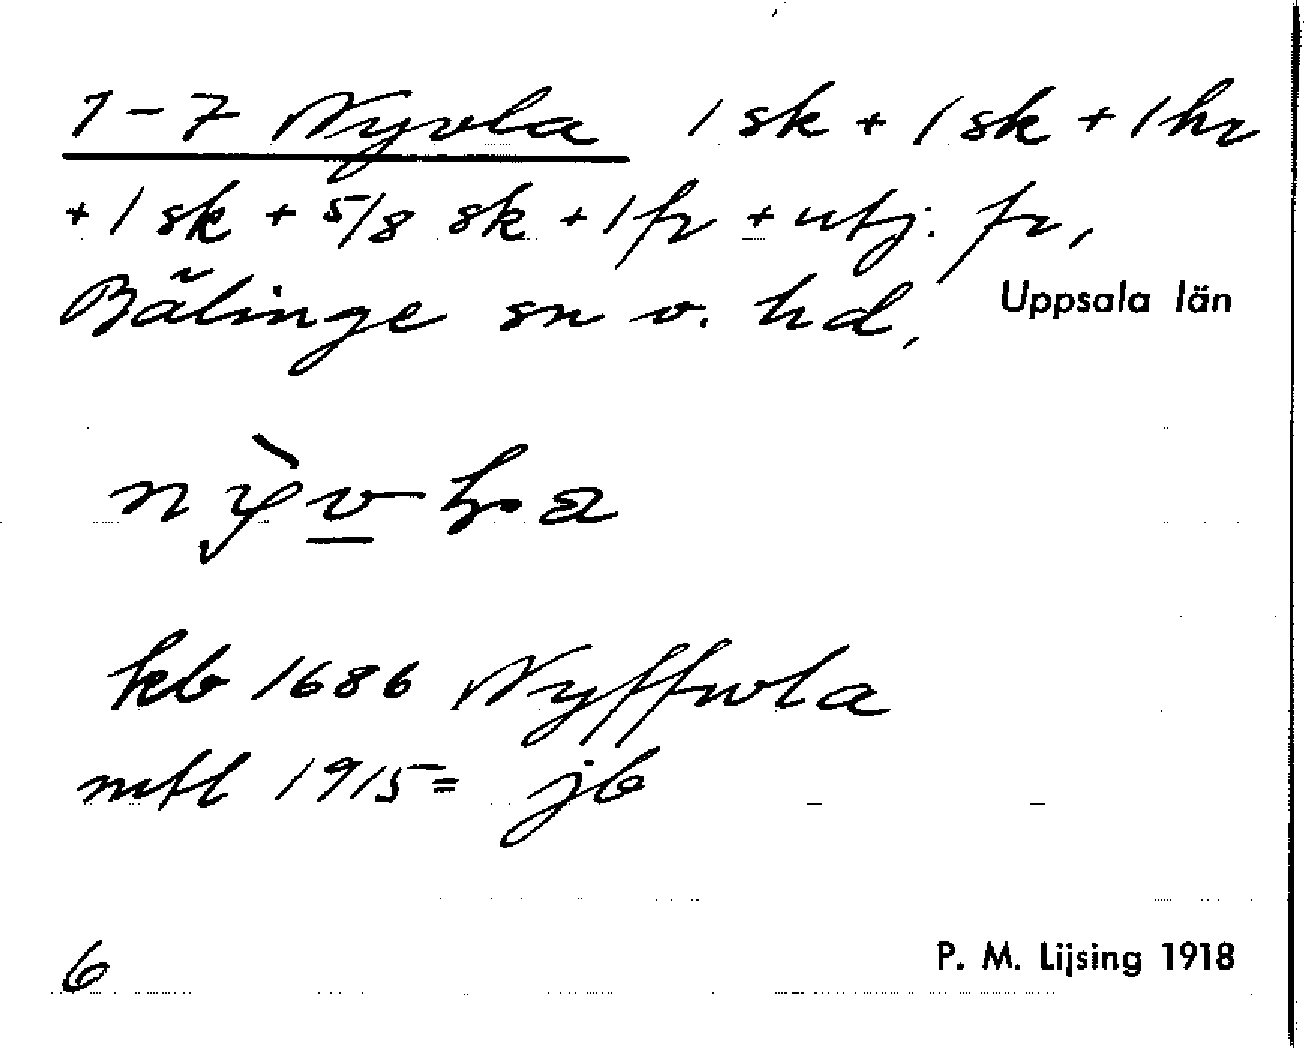 1-7 Nyvla 1 sk + 1 sk + 1 hr
+ 1 sk + 5/8 sk + 1 fr + utj. fr,
Bälinge sn o. hd, Uppsala län
kb 1686 Nyffwla
mtl 1915 = jb
6 P. M. Lijsing 1918